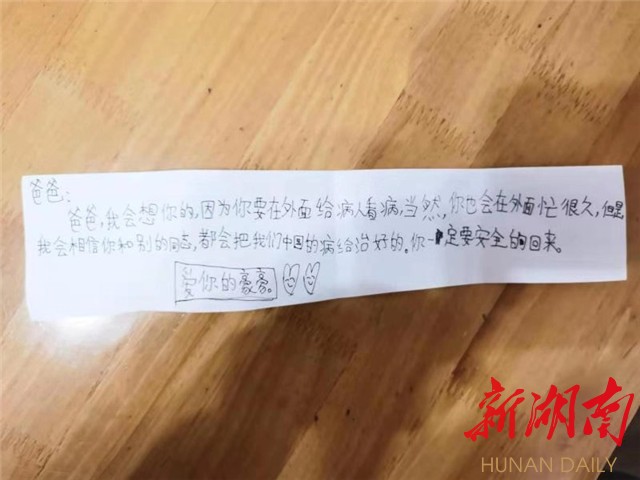 爸爸：
爸爸，我会想你的，因为你要在外面给病人看病，当然，你也会在外面忙很久，但是
我会相信你和别的同志，都会把我们中国的病给治好的。你一定要安全的回来。
爱你的豪豪。
新湖南
HUNAN DAILY